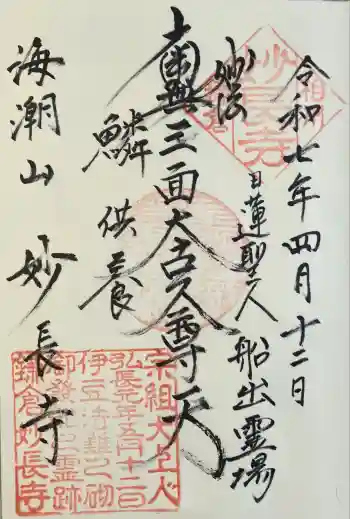 令和七年四月十二日
妙法
日蓮聖人
船出霊場
三面大古久尊天
鱗供養
海潮山
妙長寺
妙長寺
宗組大上人
弘長元年五月十二日
伊豆法難之砌
霊跡
鎌倉妙長寺